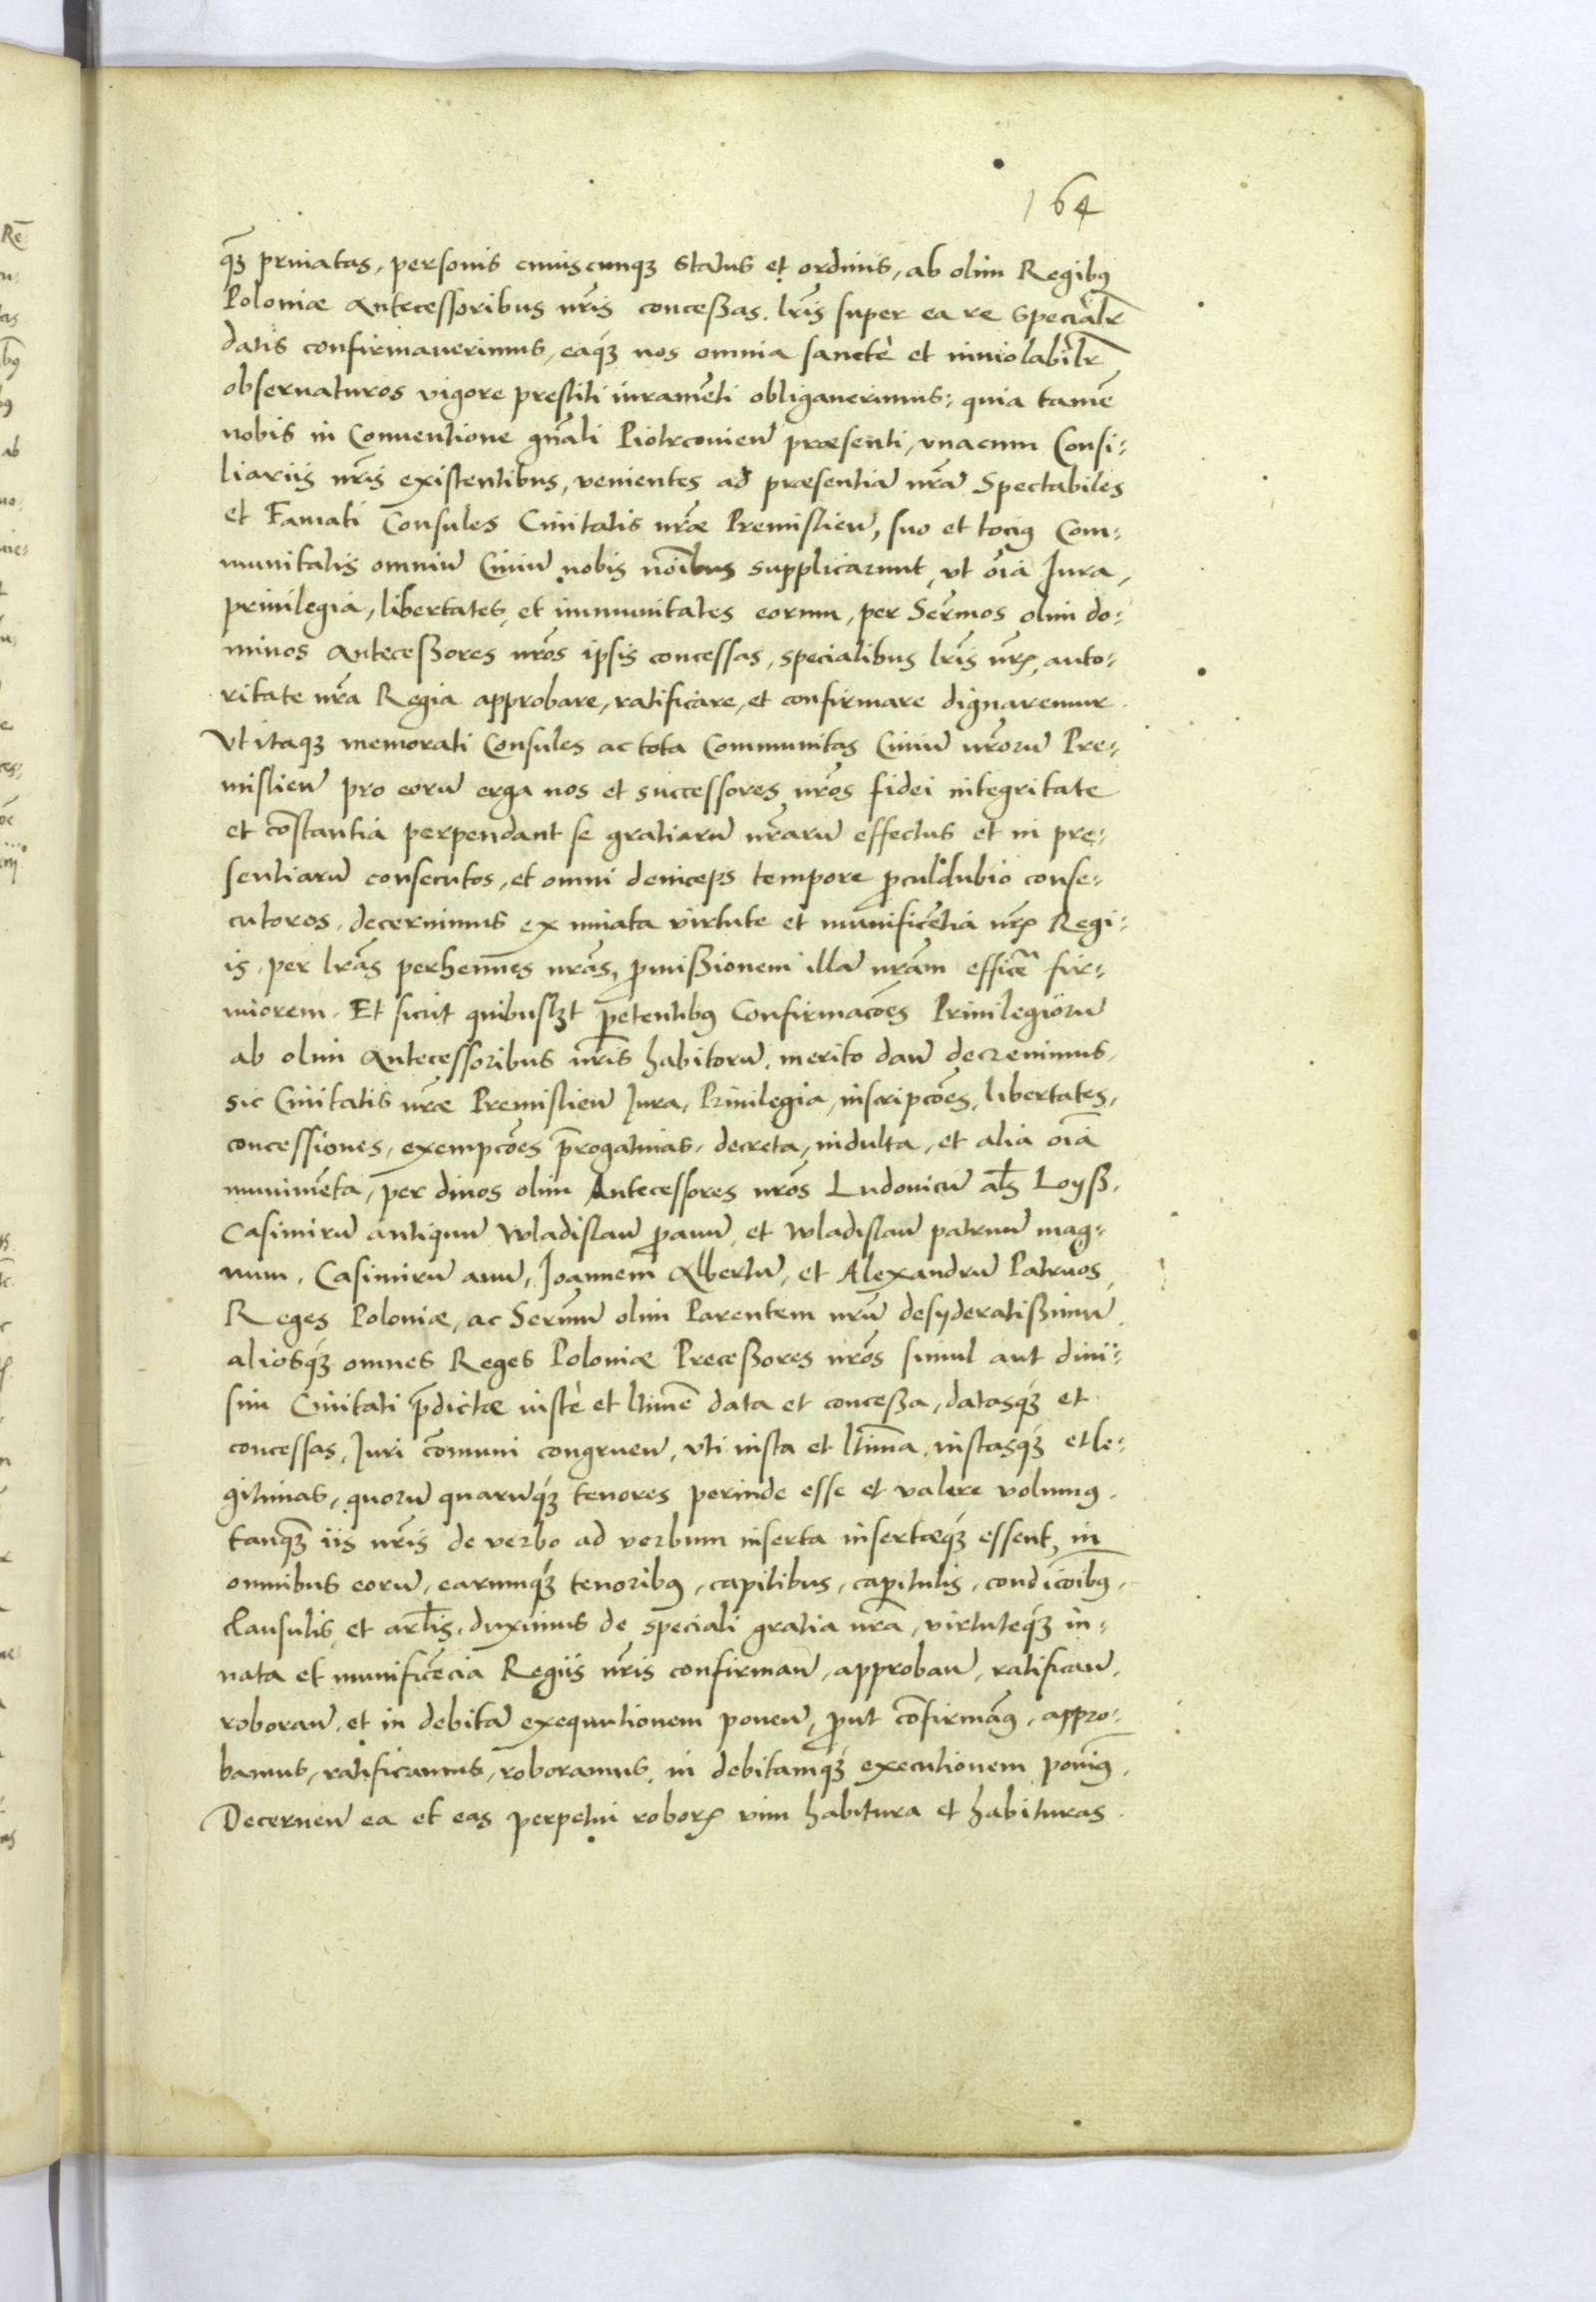 164
q̃ꝫ priuatas, personis cuiuscunqꝫ status et ordinis, ab olim Regibꝰ
Poloniæ Antecessoribus nr̃is conceßas, lr̃is super ea re Specialr̃
datis confirmauerimus, eaqꝫ́ nos omnia sanctè et inuiolabilr̃
obseruaturos vigore prestiti iuramẽti obligauerimus: quia tamẽ
nobis in Conuentione gñali Piotrconieñ præsenti, vnacum Consi:
liariis nr̃is existentibus, venientes ad præsentiã nr̃ã Spectabiles
et Famati Consules Ciuitatis nr̃æ Premislieñ, suo et tociꝰ Com:
munitatis omniũ Ciuiũ nobis noĩbus supplicarunt, vt oĩa Jura,
priuilegia, libertates, et immunitates eorum, per Serm̃os olim do:
minos Anteceßores nr̃os ipsis concessas, specialibus lr̃is nr̃ꝭ, auto:
ritate nr̃a Regia approbare, ratificare, et confirmare dignaremur.
Vt itaqꝫ memorati Consules ac tota Communitas Ciuiũ nr̃orũ Pre:
mislieñ pro eorũ erga nos et successores nr̃os fidei integritate
et cõstantia perpendant se gratiarũ nr̃arũ effectus et in prę:
sentiarũ consecutos, et omni deniceps tempore ꝓculdubio conse:
cuturos, decernimus ex innata virtute et munificẽtia nr̃ꝭ Regi:
is, per lr̃as perhennes nr̃as, ꝓmißionem illã nr̃am efficẽ fir:
miorem. Et sicut quibuslꝫt ꝑetentibꝰ Confirmacões Priuilegiorũ
ab olim Antecessoribus nr̃is habitorũ, merito dañ decreuimus,
sic Ciuitatis nr̃æ Premislieñ Jura, Priuilegia, inscripcões, libertates,
concessiones, exempcões p̃rogatiuas, decreta, indulta, et alia oĩa
munimẽta, per diuos olim Antecessores nr̃os Ludouicũ al̃s Loyß,
Casimirũ antiquũ Wladislaũ ꝓauũ, et Wladislaũ patruũ mag:
num, Casimirũ auũ, Joannem Albertũ, et Alexandrũ Patruos,
Reges Poloniæ, ac Serm̃ũ olim Parentem nr̃ũ desyderatißimũ,
aliosqꝫ́ omnes Reges Poloniæ Preceßores nr̃os simul aut diui:
sim Ciuitati p̃dictæ iustè et ltimẽ data et conceßa, datasqꝫ́ et
concessas, Juri cõmuni congrueñ, vti iusta et ltim̃a, iustasqꝫ́ et le:
gitimas, quorũ quarũqꝫ́ tenores perinde esse et valere volumꝰ,
tanqꝫ̃ iis nr̃is de verbo ad verbum inserta insertæqꝫ́ essent, in
omnibus eorũ, earumqꝫ́ tenoribꝰ, capitibus, capitulis, condicoĩbꝰ,
clausulis et art̃lis, duximus de speciali gratia nr̃a, virtuteqꝫ́ in:
nata et munificẽcia Regiis nr̃is confirmañ, approbañ, ratificañ,
roborañ, et in debitã exequutionem poneñ, ꝓut cõfirmam̃ꝰ, appro:
bamus, ratificamus, roboramus, in debitamqꝫ́ executionem ponim̃ꝰ,
Decerneñ ea et eas perpetui roborꝭ vim habitura et habituras.